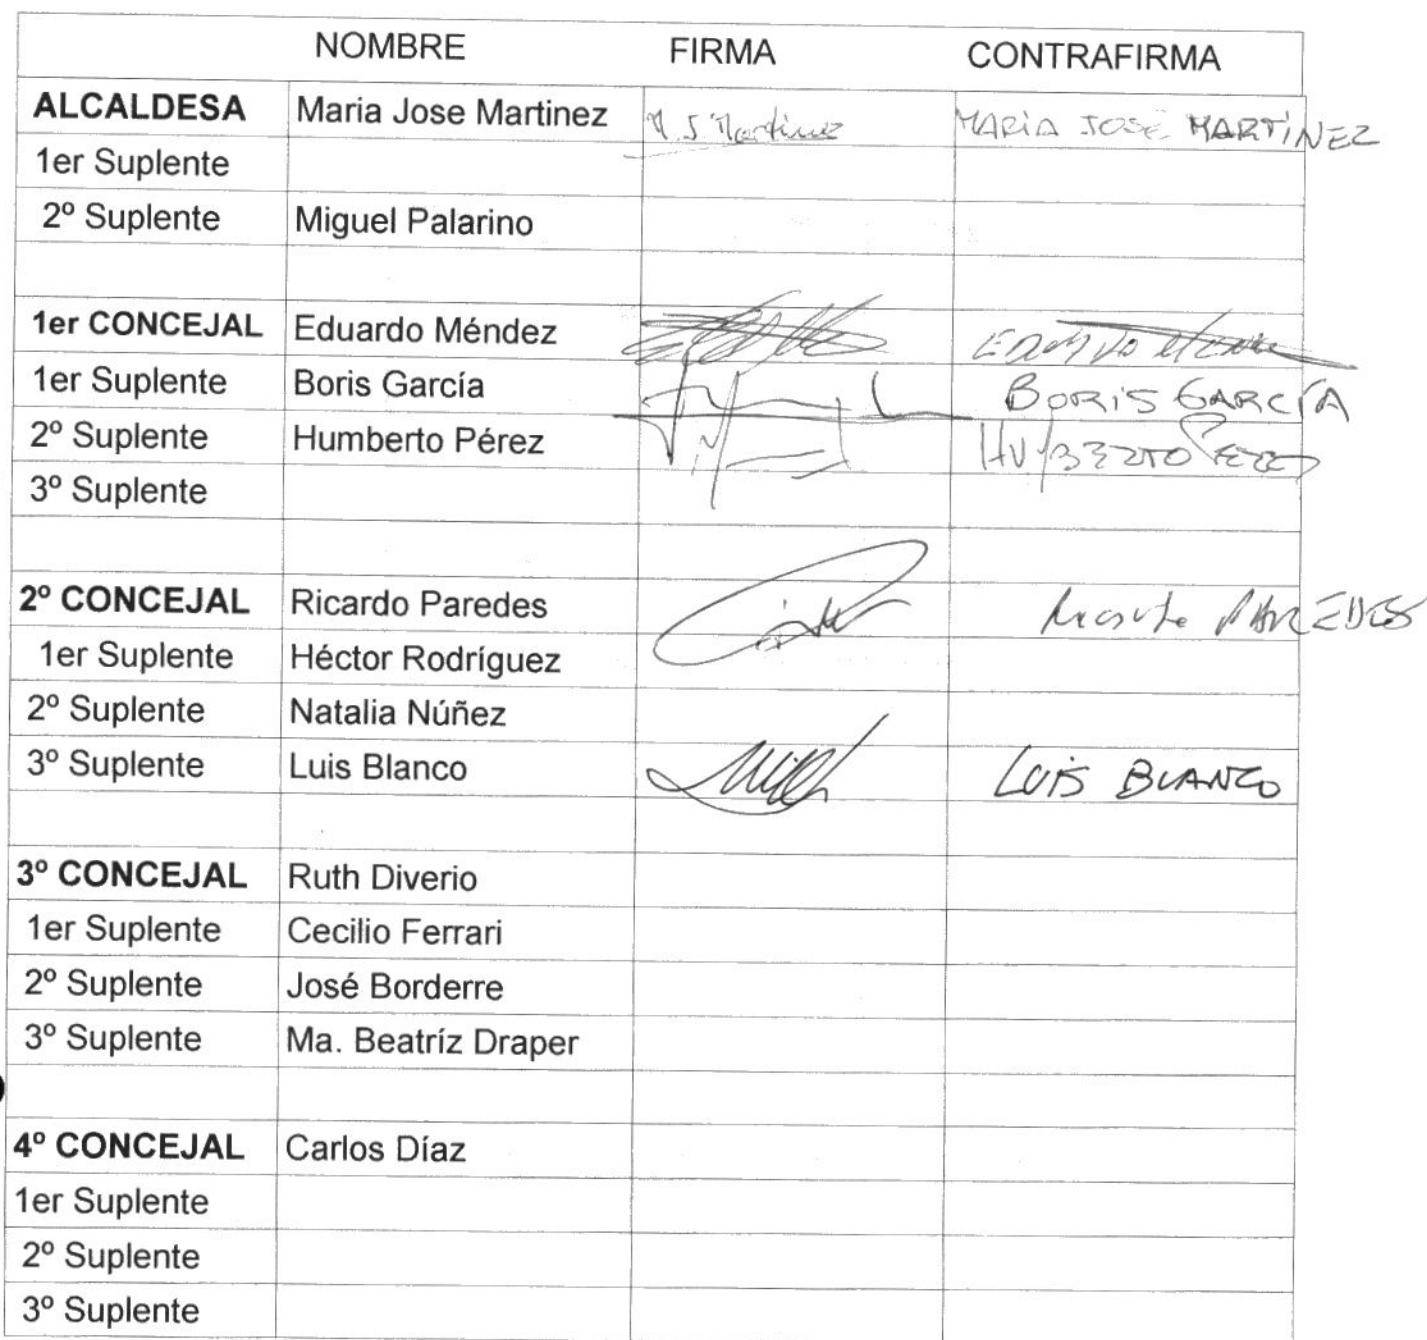 NOMBRE FIRMA CONTRAFIRMA
ALCALDESA Maria Jose Martinez M J Martinez MARIA JOSE MARTINEZ
1er Suplente
2º Suplente Miguel Palarino
1er CONCEJAL Eduardo Méndez
1er Suplente Boris García BORIS GARCÍA
2º Suplente Humberto Pérez HUMBERTO PEREZ
3º Suplente
2º CONCEJAL Ricardo Paredes Ricardo PAREDES
1er Suplente Héctor Rodríguez
2º Suplente Natalia Núñez
3º Suplente Luis Blanco LUIS BLANCO
3º CONCEJAL Ruth Diverio
1er Suplente Cecilio Ferrari
2º Suplente José Borderre
3º Suplente Ma. Beatríz Draper
4º CONCEJAL Carlos Díaz
1er Suplente
2º Suplente
3º Suplente